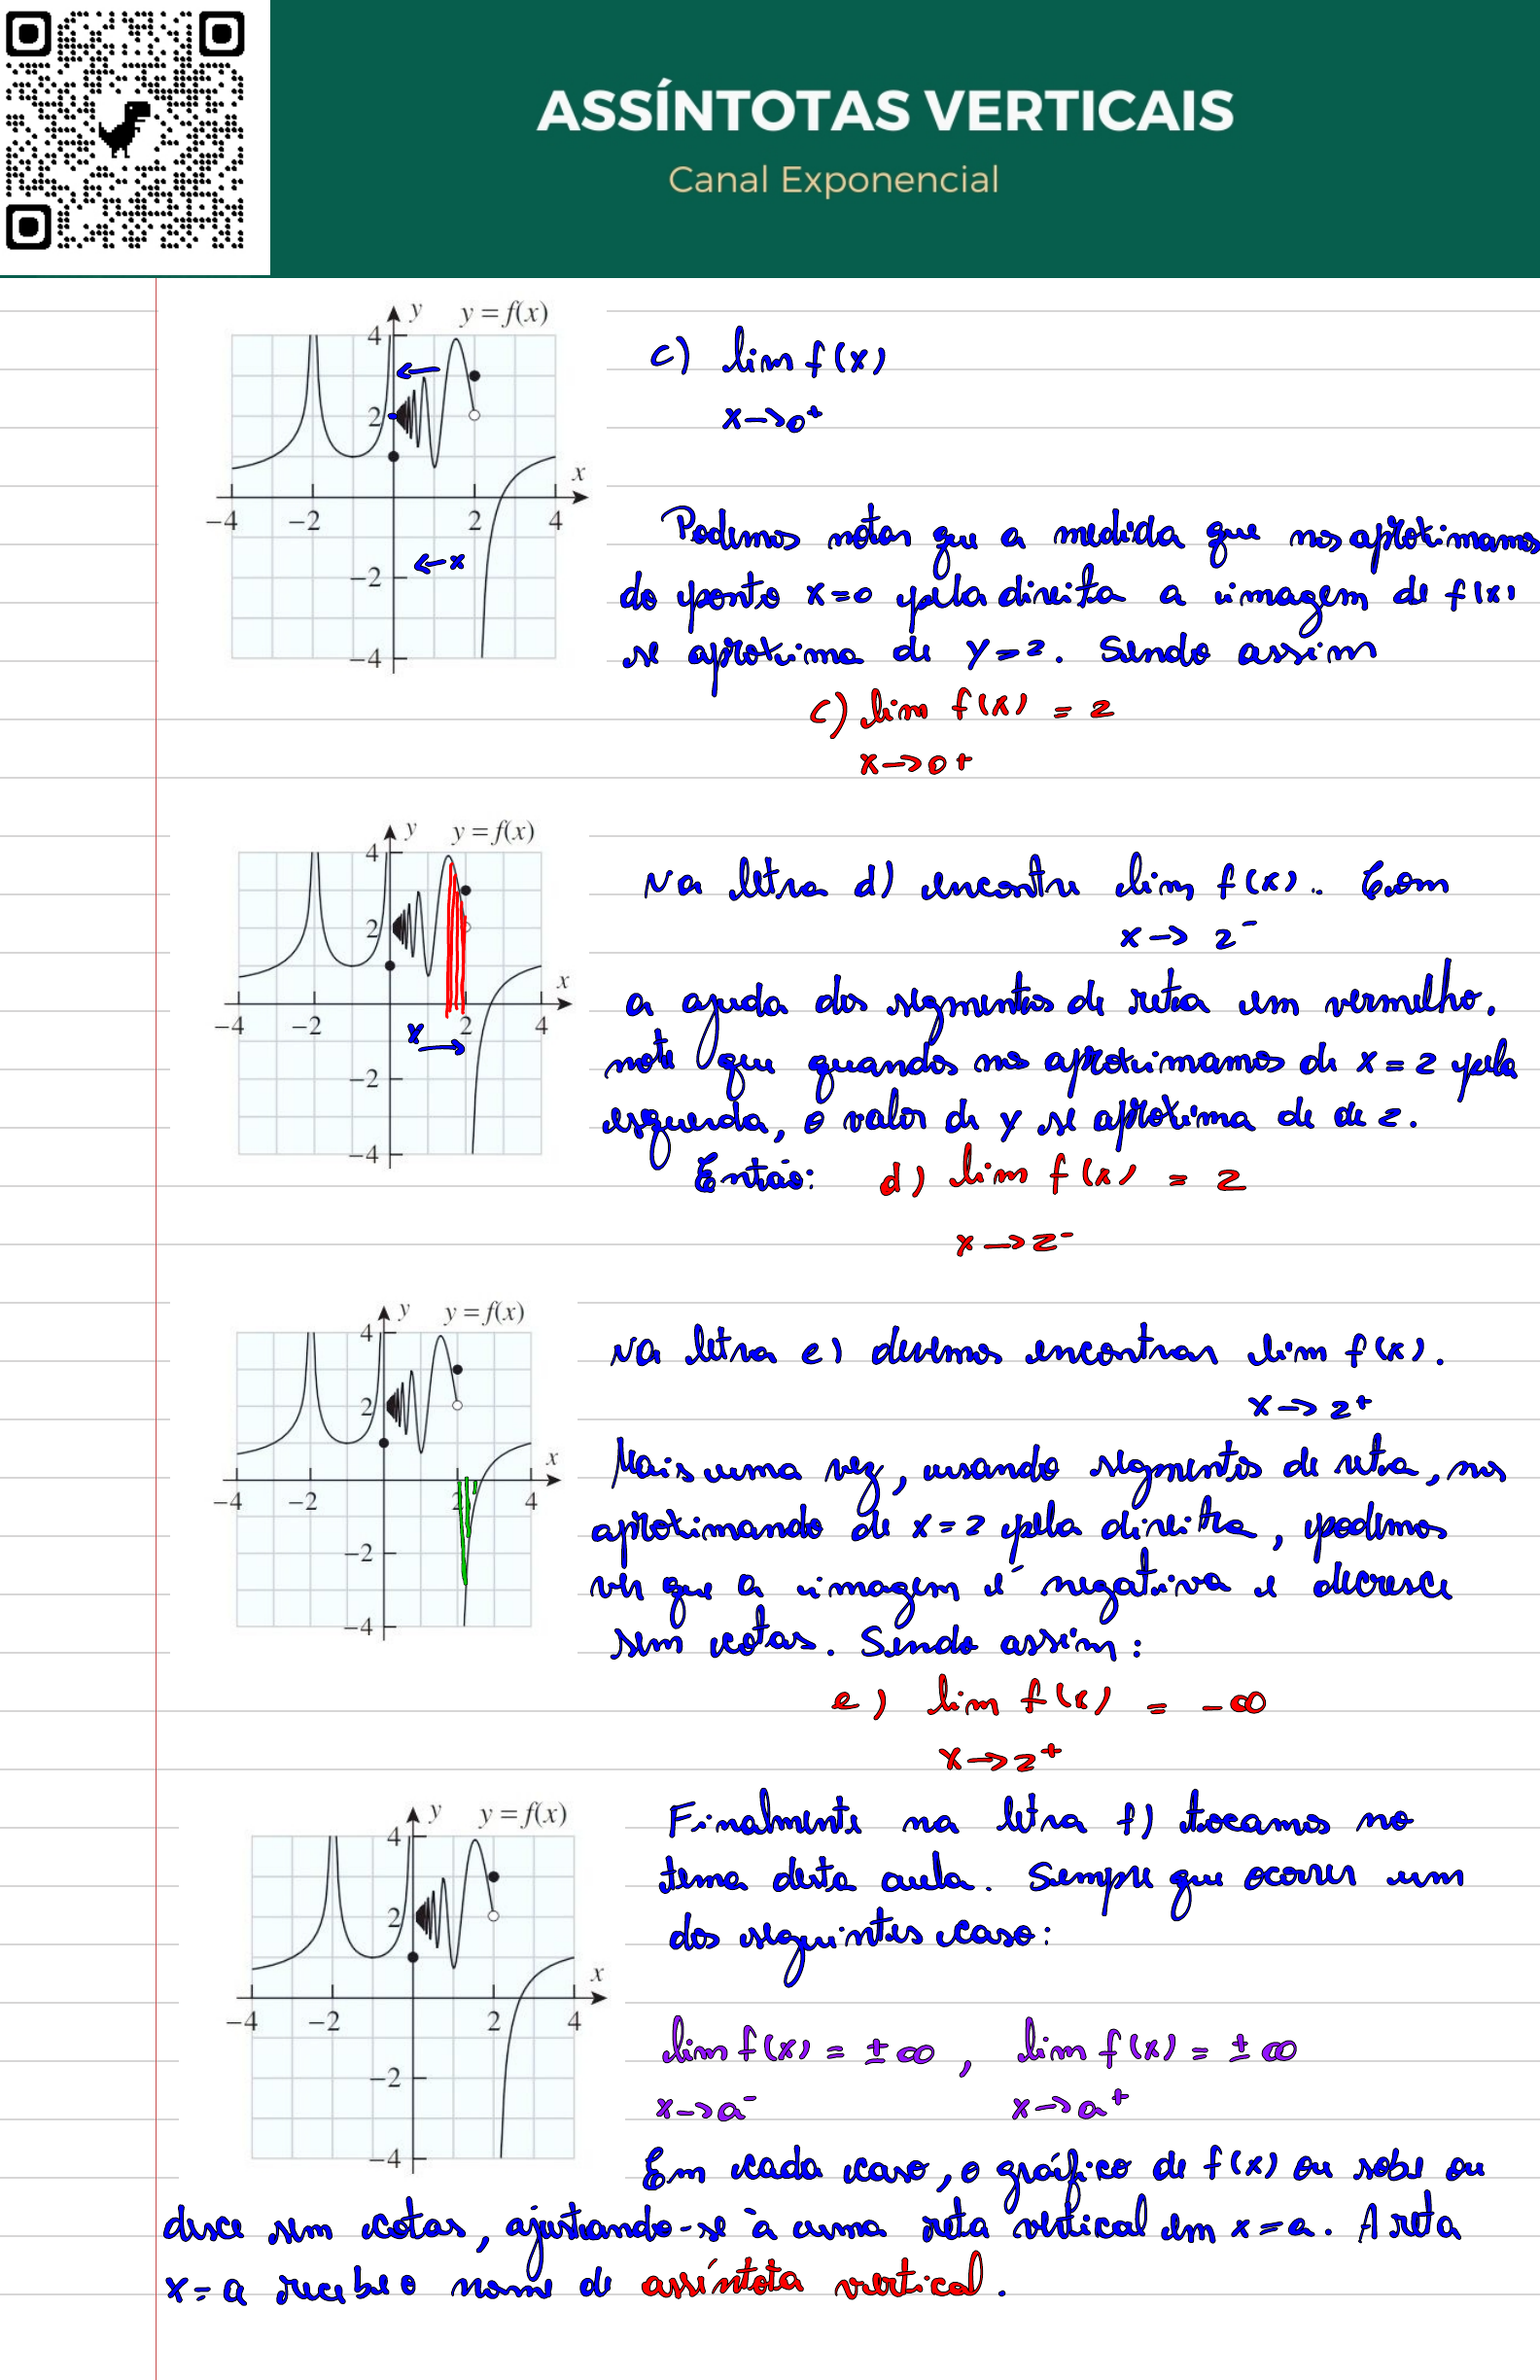 ASSÍNTOTAS VERTICAIS
Canal Exponencial
y y = f(x)
4
2
x
-4 -2 2 4
← x
-2
-4
c) lim f(x)
x→0⁺
Podemos notar que a medida que nos aproximamos
do ponto x=0 pela direita a imagem de f(x)
se aproxima de y=2. Sendo assim
c) lim f(x) = 2
x→0+
y y = f(x)
4
2
x
-4 -2 2 4
x →
-2
-4
Na letra d) encontre lim f(x). Com
x→ 2⁻
a ajuda dos segmentos de reta em vermelho.
note que quando nos aproximamos de x = 2 pela
esquerda, o valor de y se aproxima de de 2.
Então: d) lim f(x) = 2
x→2⁻
y y = f(x)
4
2
x
-4 -2 2 4
-2
-4
Na letra e) devemos encontrar lim f(x).
x→2⁺
Mais uma vez, usando segmentos de reta, nos
aproximando de x=2 pela direita, podemos
ver que a imagem é negativa e decresce
sem cotas. Sendo assim:
e) lim f(x) = -∞
x→2⁺
y y = f(x)
4
2
x
-4 -2 2 4
-2
-4
Finalmente na letra f) tocamos no
tema desta aula. Sempre que ocorrer um
dos seguintes caso:
lim f(x) = ±∞, lim f(x) = ±∞
x→a⁻ x→a⁺
Em cada caso, o gráfico de f(x) ou sobe ou
desce sem cotas, ajustando-se à uma reta vertical em x=a. A reta
x=a recebe o nome de assíntota vertical.